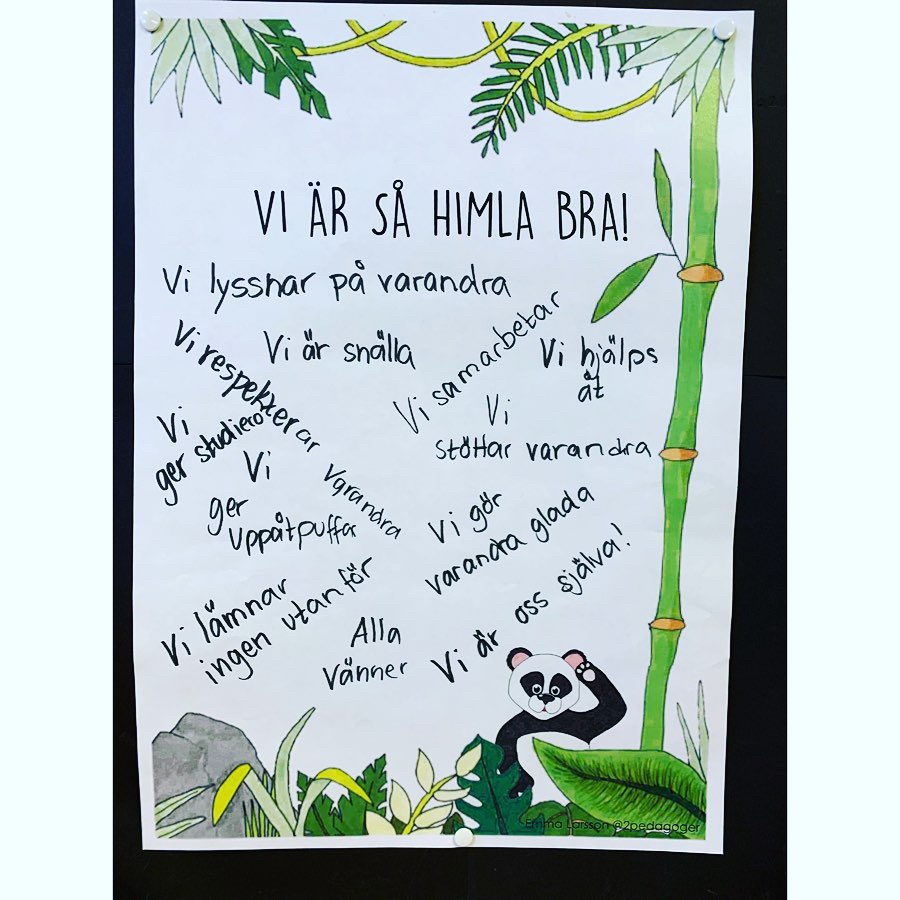 VI ÄR SÅ HIMLA BRA!
Vi lyssnar på varandra
Vi respekterar varandra
Vi är snälla
Vi samarbetar
Vi hjälps
åt
Vi
ger studiero
Vi
stöttar varandra
Vi
ger
uppåtpuffar
Vi gör
varandra glada
Vi lämnar
ingen utanför
Alla
vänner
Vi är oss själva!
Emma Larsson @2pedagoger